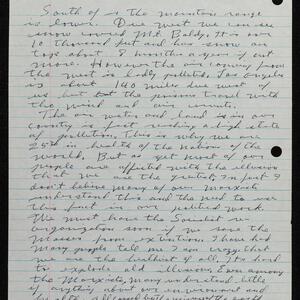 South of is the mountain range
is slower. Due west we can see
snow covered Mt. Baldy. It is over
10 thousand feet and has snow on
top about 8 months a year if not
more. However the air coming from
the west is badly polluted. Los Angeles
is about 140 miles due west of
us but the poisons travel with
the wind and air currents.
The air water and land is in our
country is fast reaching a high state
of pollution. This is why we are
25th in health of the nations of the
world. But as yet most of our
people are affected with the illusion
that we are the greatest. In fact I
don't believe many of our marxists
understand this and the need to use
this fact in our political work.
We must have the Socialist re-
organization soon if we save the
masses from extinction. I have had
many people tell me I am crazy that
we are the healthiest of all. Its hard
to explode old illusions. Even among
the Marxists, many understand little
of anything about our environment and
health